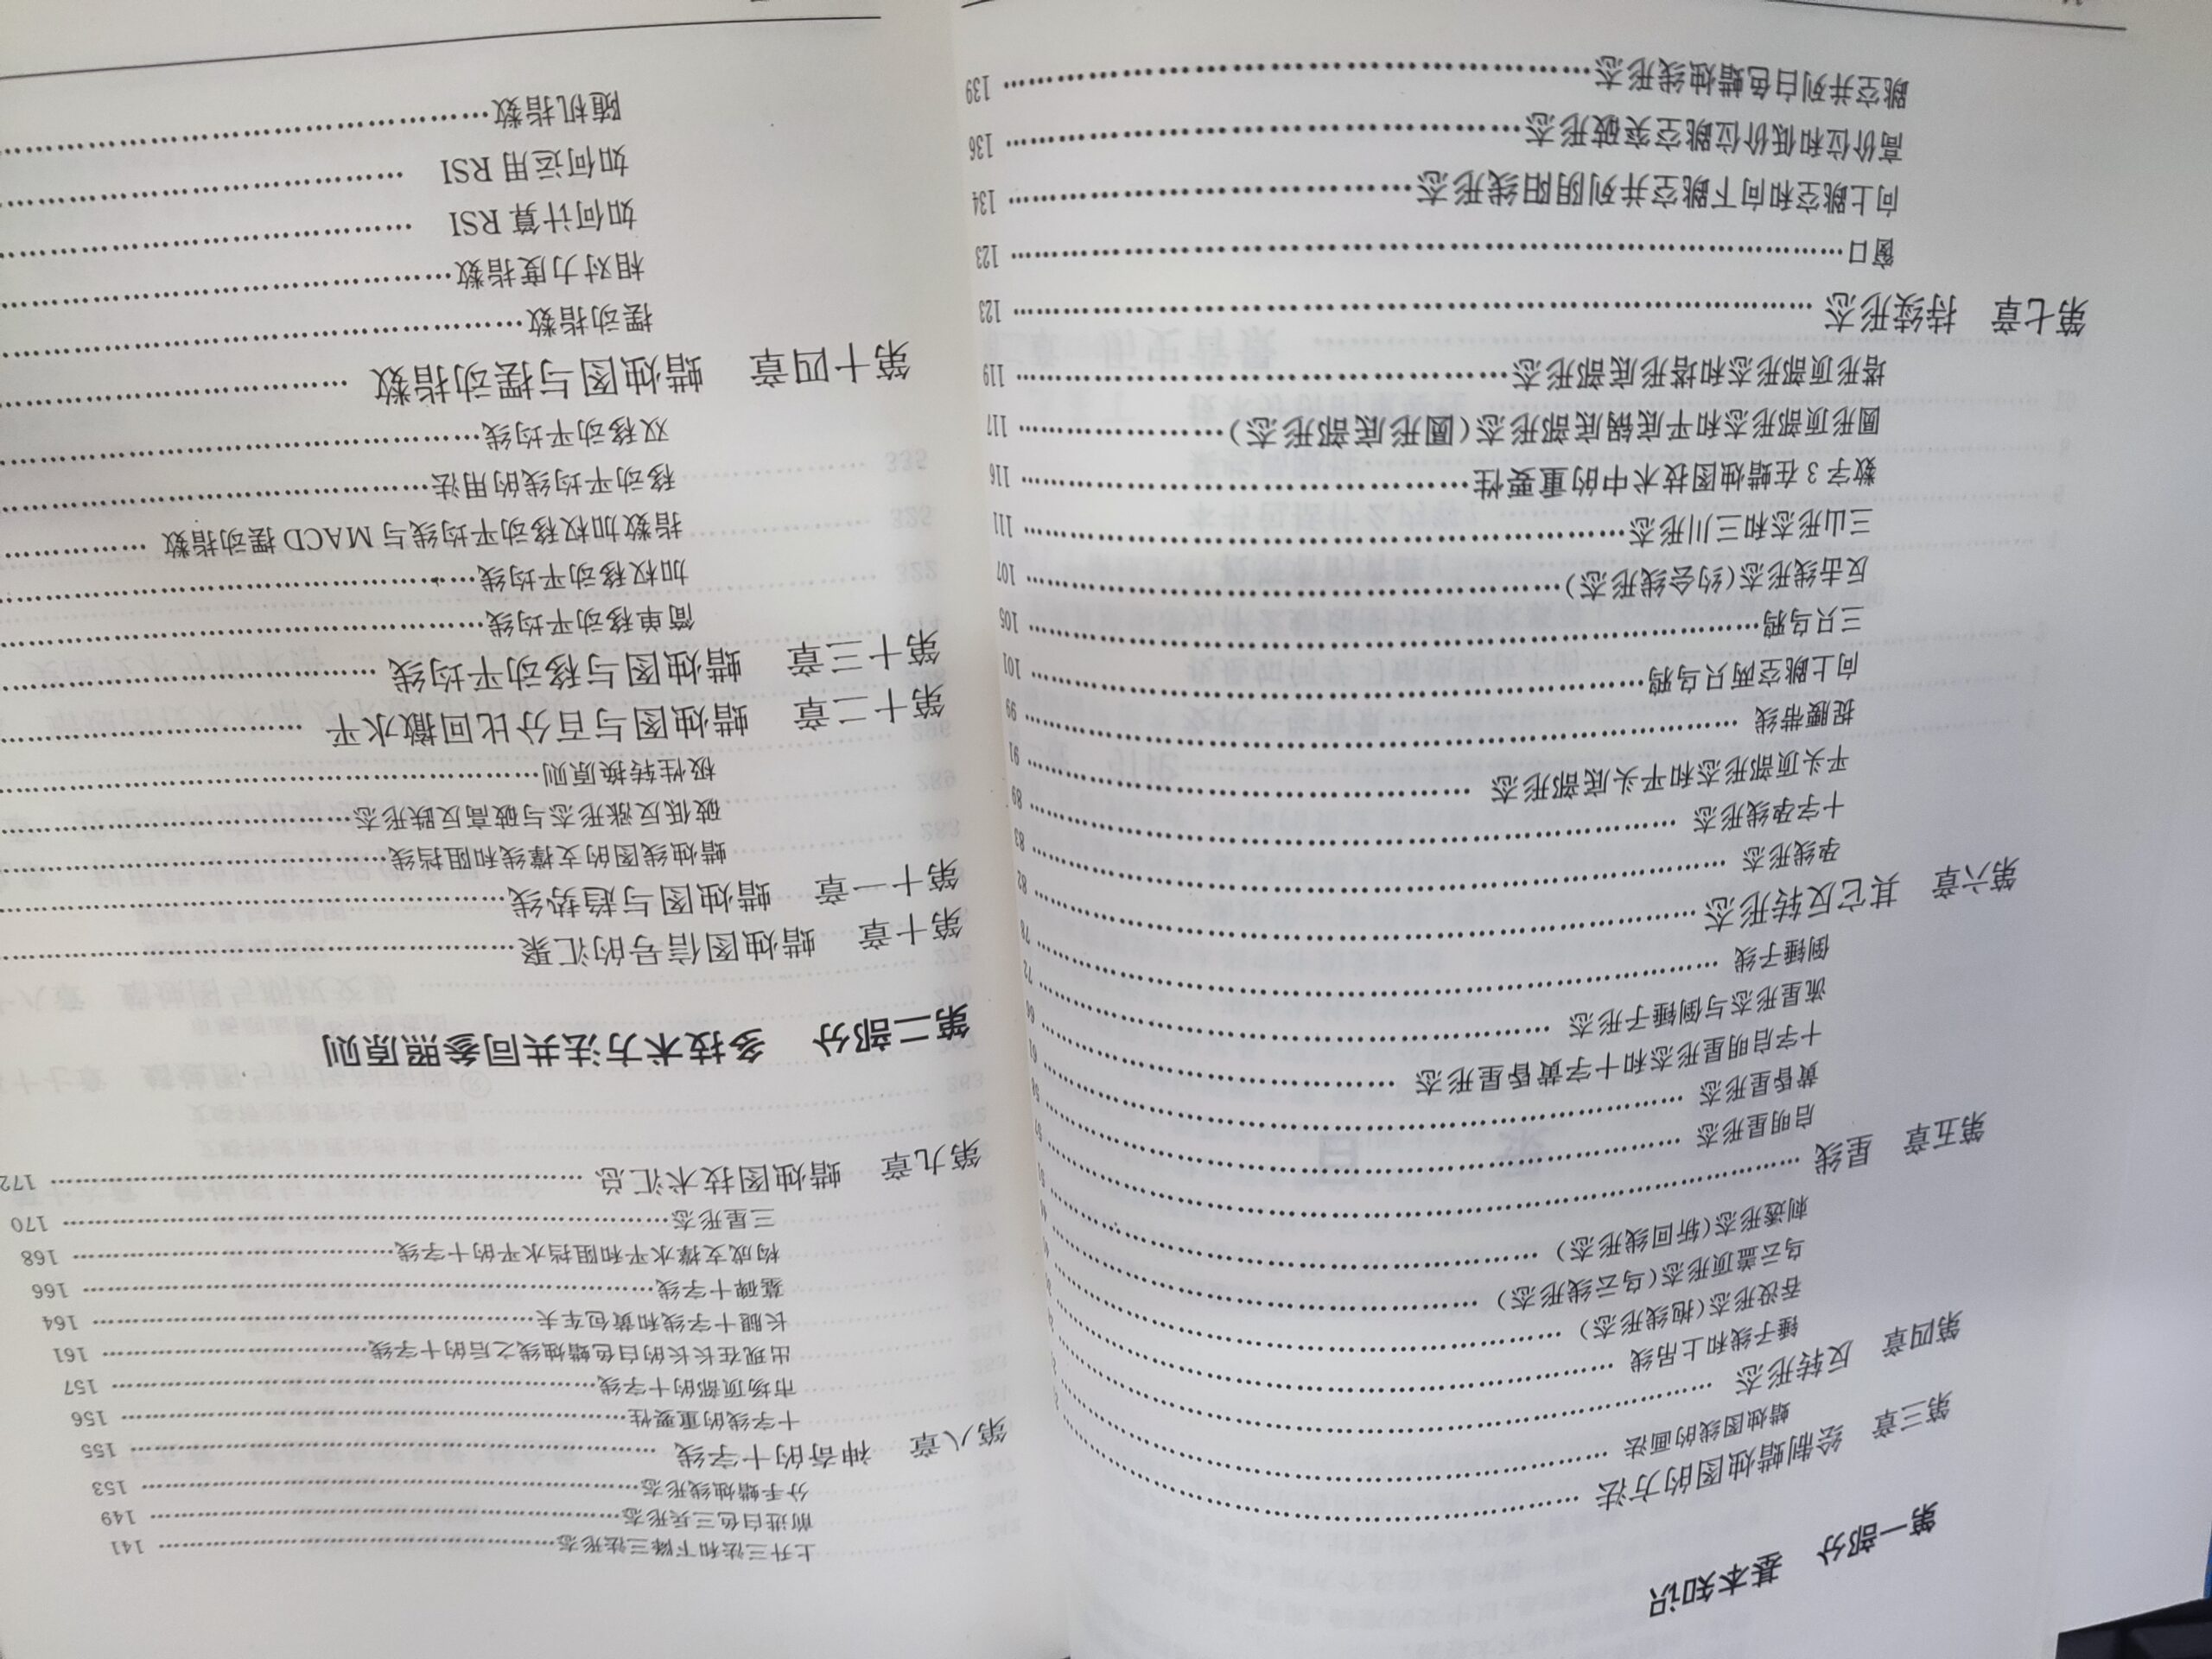 第一部分 基本知识
第三章 绘制蜡烛图的方法
蜡烛图线的画法
第四章 反转形态
锤子线和上吊线
吞没形态(抱线形态)
乌云盖顶形态(乌云线形态)
刺透形态(斩回线形态)
第五章 星线 57
启明星形态 58
黄昏星形态 61
十字启明星形态和十字黄昏星形态 66
流星形态与倒锤子形态 72
倒锤子线 78
第六章 其它反转形态 82
孕线形态 83
十字孕线形态 89
平头顶部形态和平头底部形态 91
捉腰带线 99
向上跳空两只乌鸦 101
三只乌鸦 105
反击线形态(约会线形态) 107
三山形态和三川形态 111
数字 3 在蜡烛图技术中的重要性 116
圆形顶部形态和平底锅底部形态(圆形底部形态) 117
塔形顶部形态和塔形底部形态 119
第七章 持续形态 123
窗口 123
向上跳空和向下跳空并列阴阳线形态 134
高价位和低价位跳空突破形态 136
跳空并列白色蜡烛线形态 139
上升三法和下降三法形态 141
前进白色三兵形态 149
分手蜡烛线形态 153
第八章 神奇的十字线 155
十字线的重要性 156
市场顶部的十字线 157
出现在长长的白色蜡烛线之后的十字线 161
长腿十字线和黄包车夫 164
墓碑十字线 166
构成支撑水平和阻挡水平的十字线 168
三星形态 170
第九章 蜡烛图技术汇总 172
第二部分 多技术方法共同参照原则
第十章 蜡烛图信号的汇聚
第十一章 蜡烛图与趋势线
蜡烛线图的支撑线和阻挡线
破低反涨形态与破高反跌形态
极性转换原则
第十二章 蜡烛图与百分比回撤水平
第十三章 蜡烛图与移动平均线
简单移动平均线
加权移动平均线
指数加权移动平均线与 MACD 摆动指数
移动平均线的用法
双移动平均线
第十四章 蜡烛图与摆动指数
摆动指数
相对力度指数
如何计算 RSI
如何运用 RSI
随机指数